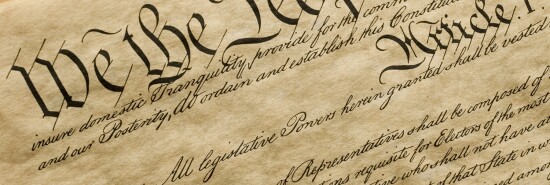 We the Peo
insure domestic Tranquility, provide for the comm
and our Posterity, do ordain and establish this Constituti
Article. I.
All legislative Powers herein granted shall be vested
of Representatives shall be composed of
ions requisite for Electors of the most
who shall not have at
of that State in w